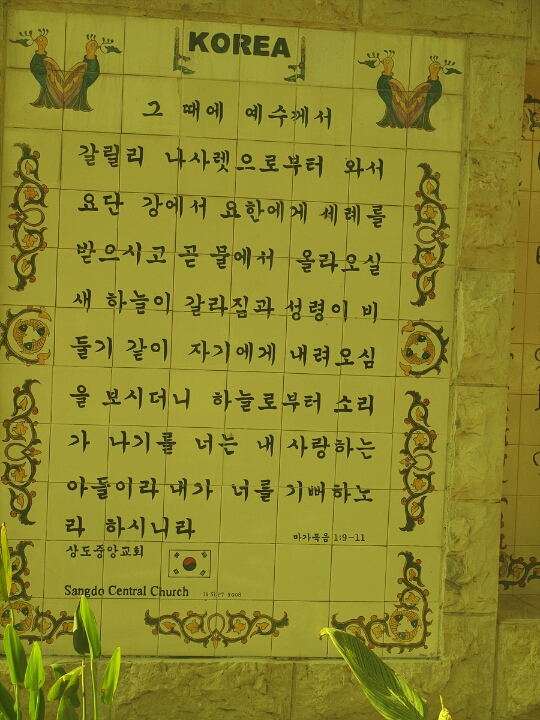 KOREA
그 때에 예수께서
갈릴리 나사렛으로부터 와서
요단 강에서 요한에게 세례를
받으시고 곧 물에서 올라오실
새 하늘이 갈라짐과 성령이 비
둘기 같이 자기에게 내려오심
을 보시더니 하늘로부터 소리
가 나기를 너는 내 사랑하는
아들이라 내가 너를 기뻐하노
라 하시니라
마가복음 1:9-11
상도중앙교회
Sangdo Central Church
15 SEPT. 2008